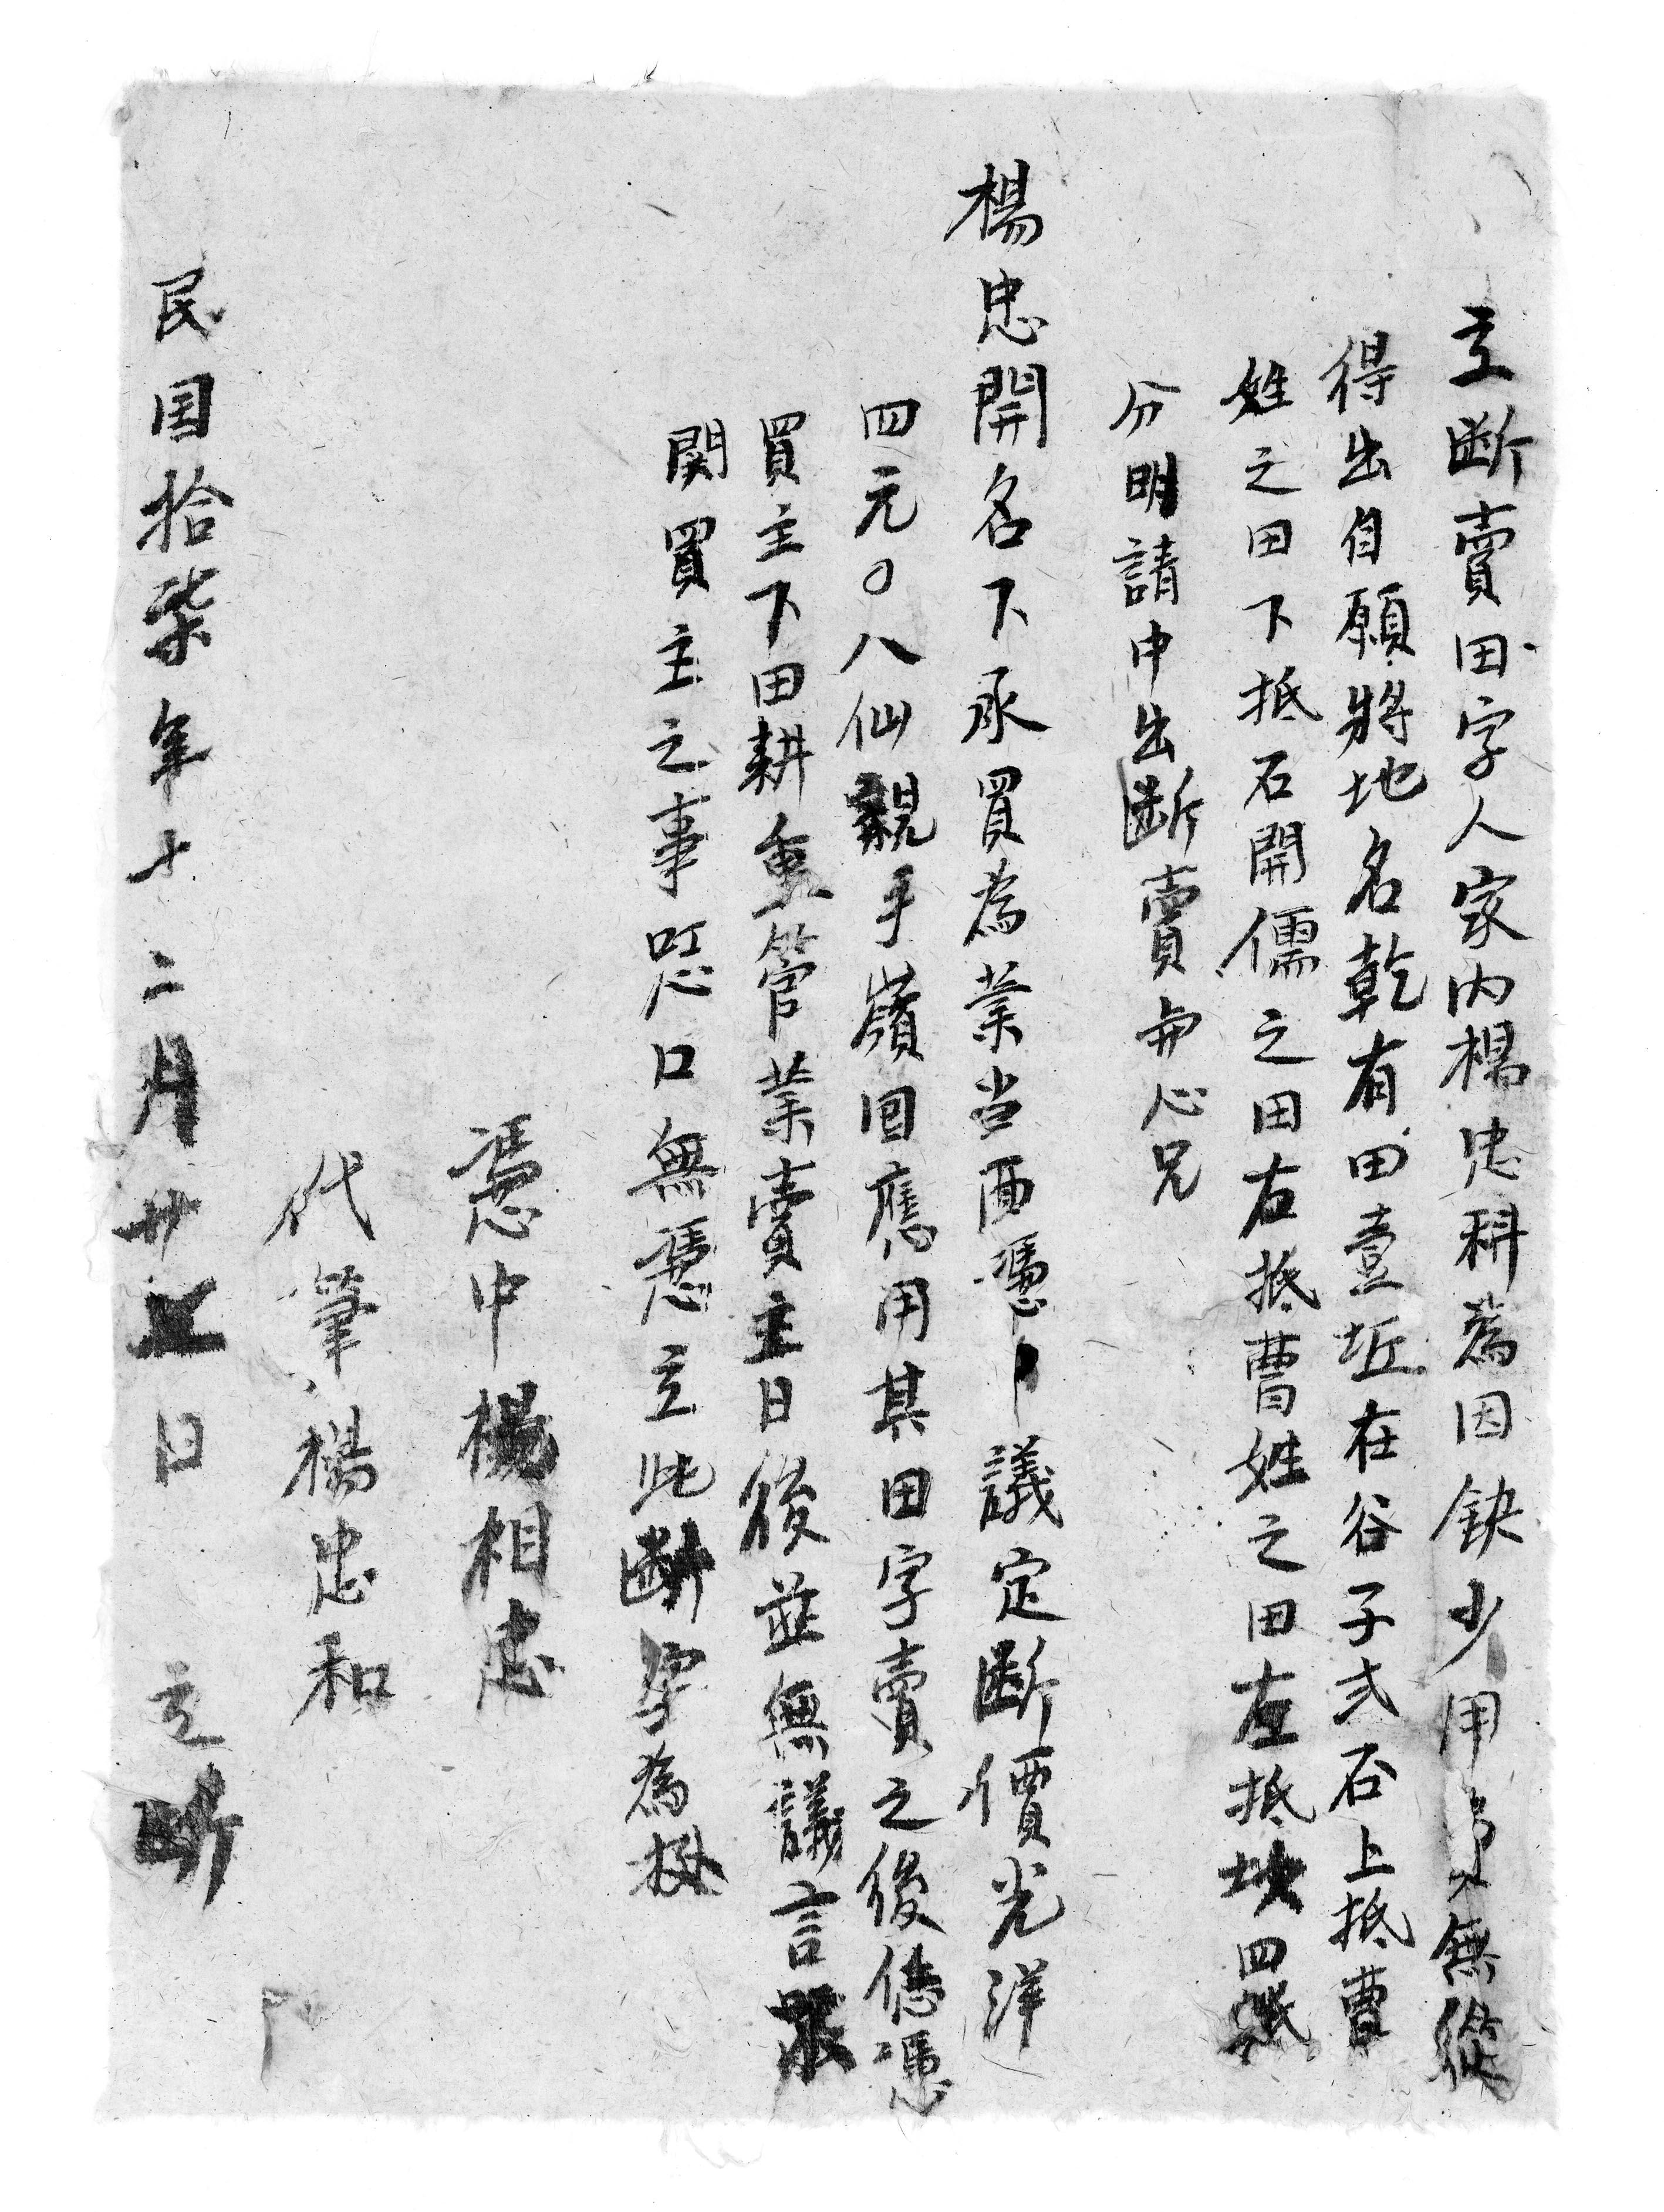 立断賣田字人家内楊忠科為因缺少用無縱
得出自願將地名乾有田壹坵在谷子弍石上抵曹
姓之田下抵石開儒之田右抵曹姓之田左抵坎四抵
分明請中出断賣與心兄
楊忠開名下承買為業当面憑中議定断價光洋
四元〇八仙親手嶺回應用其田字賣之後恁憑
買主下田耕重管業賣主日後並無議言
関買主之事恐口無憑立此断字為據
憑中楊相忠
代筆楊忠和
民国拾柒年十二月廿日 立断